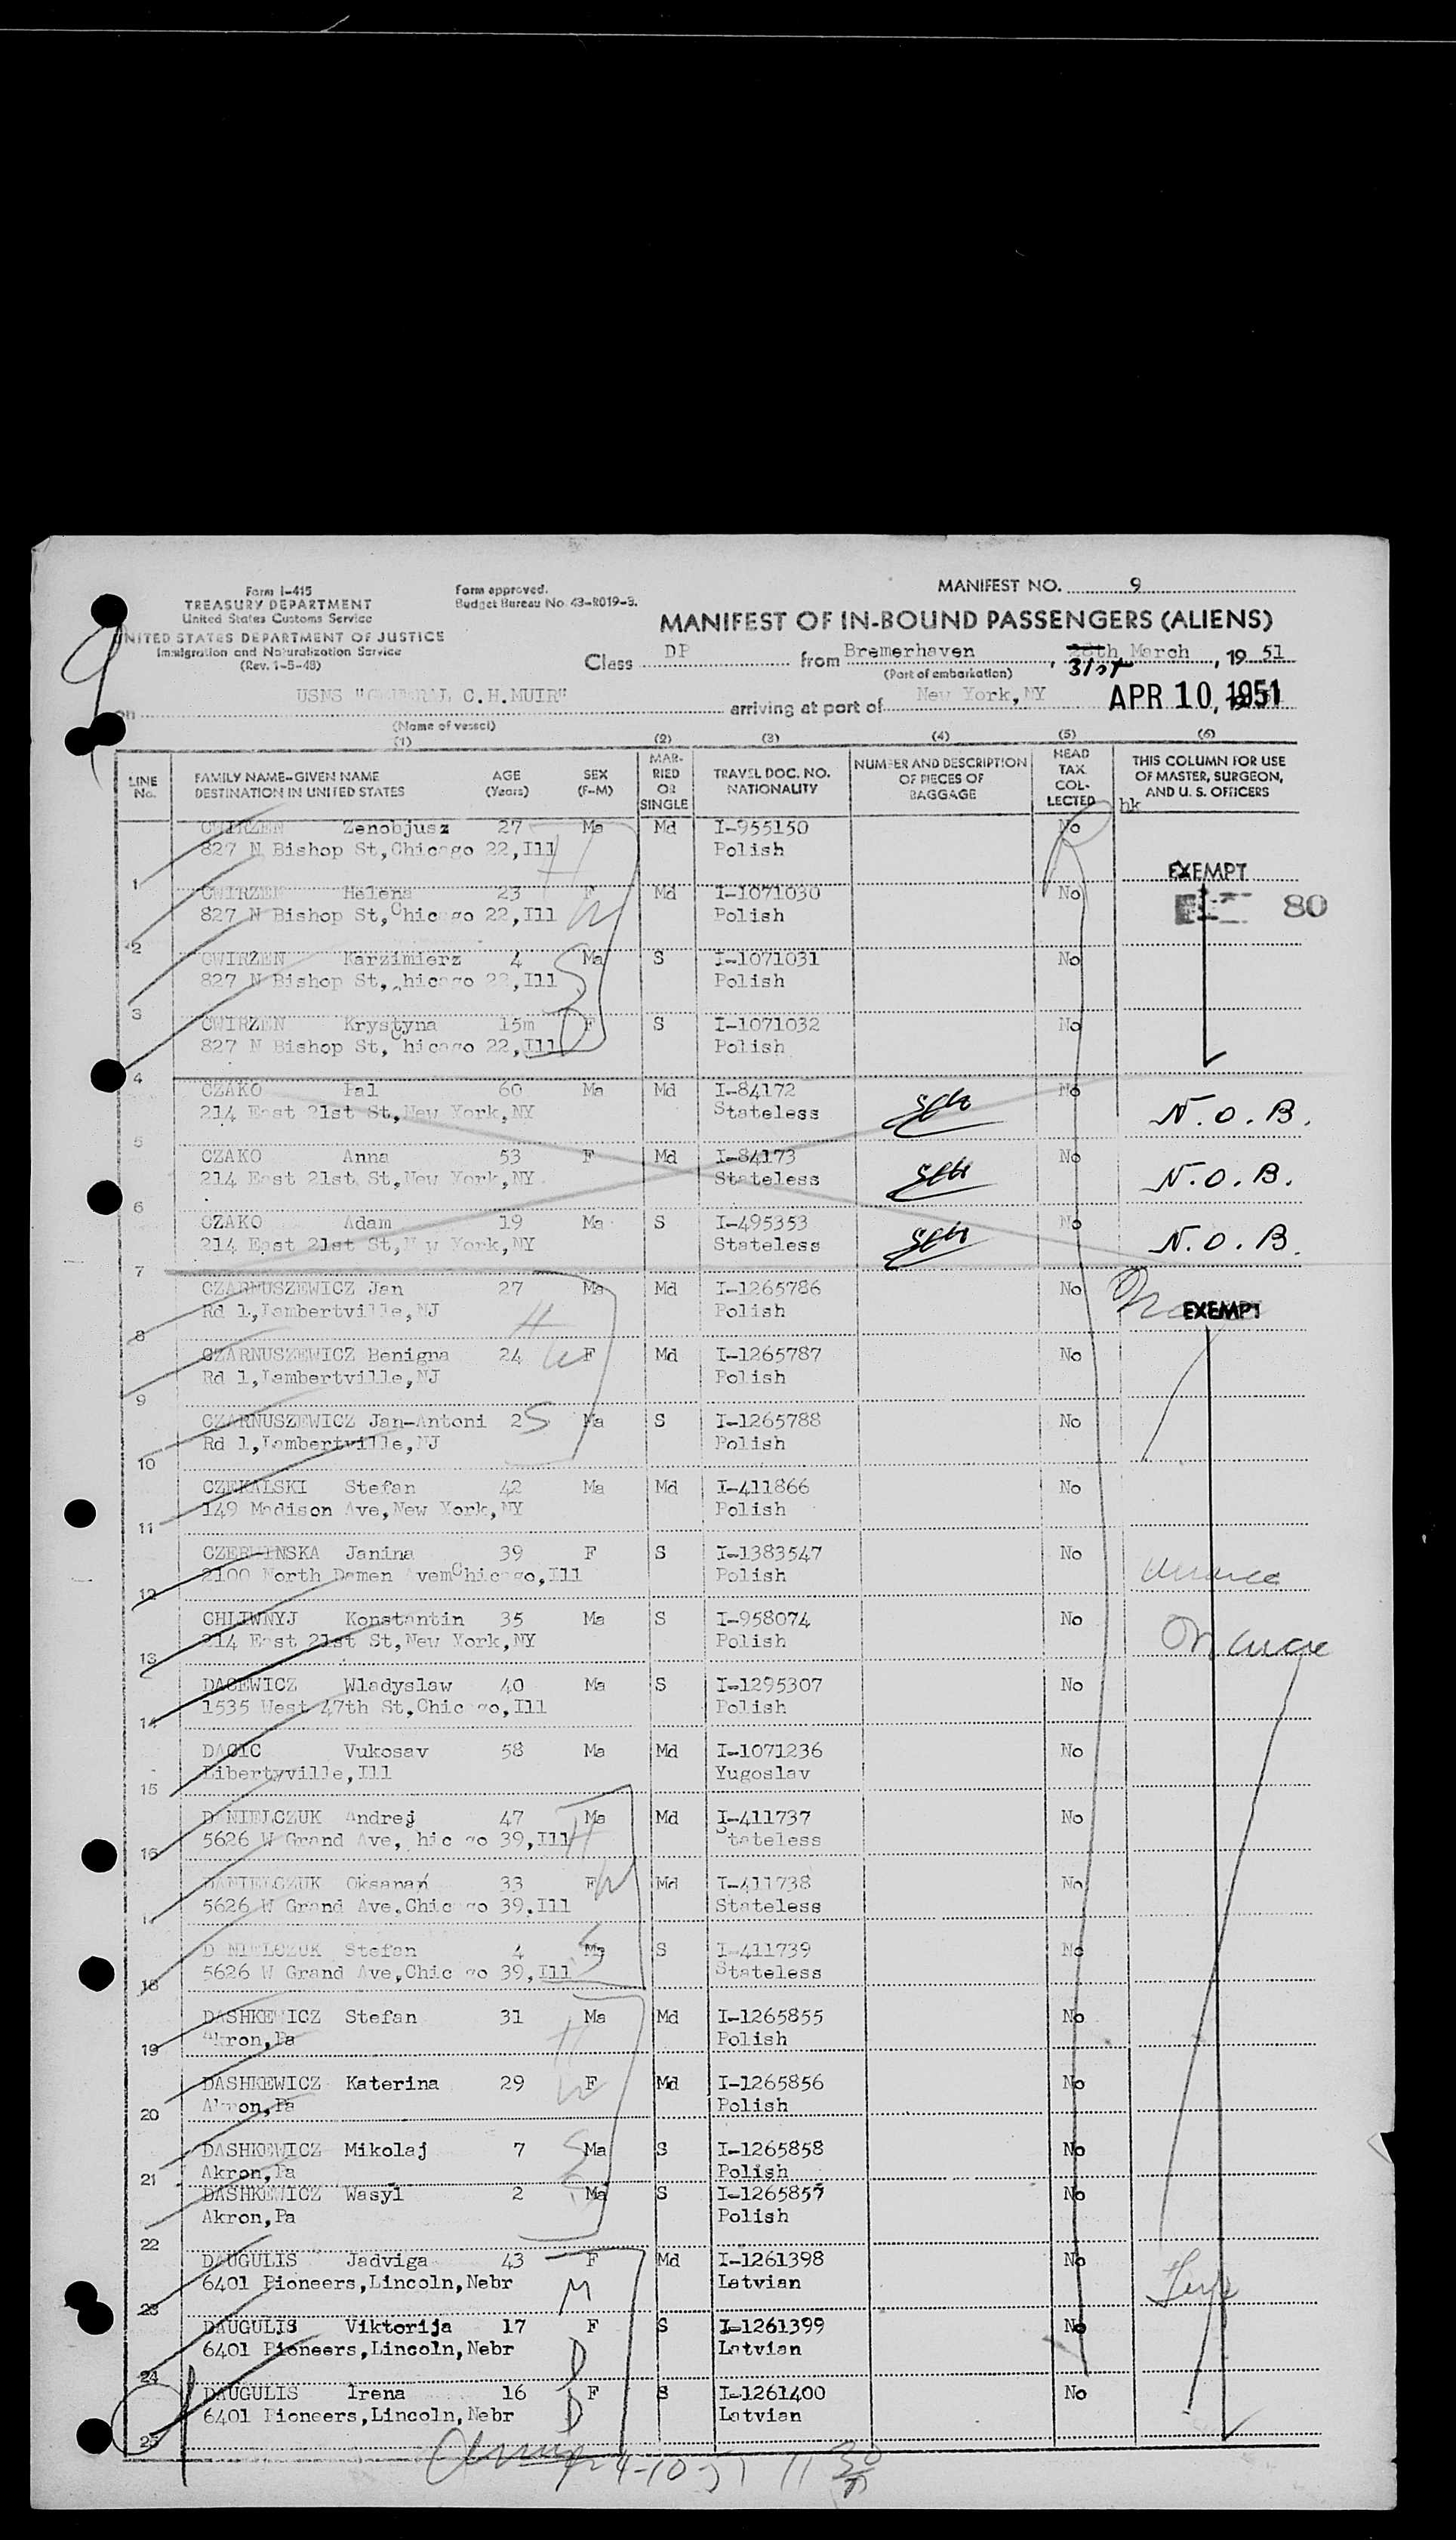 Form I-415
TREASURY DEPARTMENT
United States Customs Service
UNITED STATES DEPARTMENT OF JUSTICE
Immigration and Naturalization Service
(Rev. 1-5-48)
Form approved.
Budget Bureau No. 43-R019-3.
MANIFEST NO. 9
MANIFEST OF IN-BOUND PASSENGERS (ALIENS)
Class DP from Bremerhaven, 28th March, 19 51
31st
(Port of embarkation)
on USNS "GENERAL C.H.MUIR" arriving at port of New York,NY APR 10, 1951
(Name of vessel)
(1) (2) (3) (4) (5) (6)
LINE No. FAMILY NAME-GIVEN NAME DESTINATION IN UNITED STATES AGE (Years) SEX (F-M) MARRIED OR SINGLE TRAVEL DOC. NO. NATIONALITY NUMBER AND DESCRIPTION OF PIECES OF BAGGAGE HEAD TAX COLLECTED THIS COLUMN FOR USE OF MASTER, SURGEON, AND U. S. OFFICERS
hk
CWIRZEN Zenobjusz 27 Ma Md I-955150 No
827 N Bishop St,Chicago 22,Ill Polish
1 EXEMPT
CWIRZEN Helena 23 F Md I-1071030 No
80
827 N Bishop St,Chicago 22,Ill Polish
2
CWIRZEN Karzimierz 4 Ma S I-1071031 No
827 N Bishop St, hicago 22,Ill Polish
3
CWIRZEN Krystyna 15m F S I-1071032 No
827 N Bishop St,Chicago 22,Ill Polish
4
CZAKO Pal 60 Ma Md I-84172 No
214 East 21st St,New York,NY Stateless N.O.B.
5
CZAKO Anna 53 F Md I-84173 No
214 East 21st St,New York,NY Stateless N.O.B.
6
CZAKO Adam 19 Ma S I-495353 No
214 East 21st St,New York,NY Stateless N.O.B.
7
CZARNUSZEWICZ Jan 27 Ma Md I-1265786 No
Rd 1,Lambertville,NJ Polish EXEMPT
8
CZARNUSZEWICZ Benigna 24 F Md I-1265787 No
Rd 1,Lambertville,NJ Polish
9
CZARNUSZEWICZ Jan-Antoni 2 S Ma S I-1265788 No
Rd 1,Lambertville,NJ Polish
10
CZEKALSKI Stefan 42 Ma Md I-411866 No
149 Madison Ave,New York,NY Polish
11
CZERWINSKA Janina 39 F S I-1383547 No
2100 North Damen AvemChicago,Ill Polish
12
CHLIWNYJ Konstantin 35 Ma S I-958074 No
214 East 21st St,New York,NY Polish
13
DACEWICZ Wladyslaw 40 Ma S I-1295307 No
1535 West 47th St,Chicago,Ill Polish
14
DACIC Vukosav 58 Ma Md I-1071236 No
Libertyville,Ill Yugoslav
15
DANIELCZUK Andrej 47 Ma Md I-411737 No
5626 W Grand Ave, hicago 39,Ill H Stateless
16
DANIELCZUK Oksanan 33 F W Md I-411738 No
5626 W Grand Ave.Chicago 39.Ill Stateless
17
DANIELCZUK Stefan 4 Ma S I-411739 No
5626 W Grand Ave,Chicago 39,Ill S Stateless
18
DASHKEWICZ Stefan 31 Ma Md I-1265855 No
Akron,Pa H Polish
19
DASHKEWICZ Katerina 29 F Md I-1265856 No
Akron,Pa W Polish
20
DASHKEWICZ Mikolaj 7 S Ma S I-1265858 No
Akron,Pa Polish
21
DASHKEWICZ Wasyl 2 S Ma S I-1265857 No
Akron,Pa Polish
22
DAUGULIS Jadviga 43 F Md I-1261398 No
6401 Pioneers,Lincoln,Nebr M Latvian
23
DAUGULIS Viktorija 17 F S I-1261399 No
6401 Pioneers,Lincoln,Nebr D Latvian
24
DAUGULIS Irena 16 F S I-1261400 No
6401 Pioneers,Lincoln,Nebr D Latvian
25
4-10-51 11 30